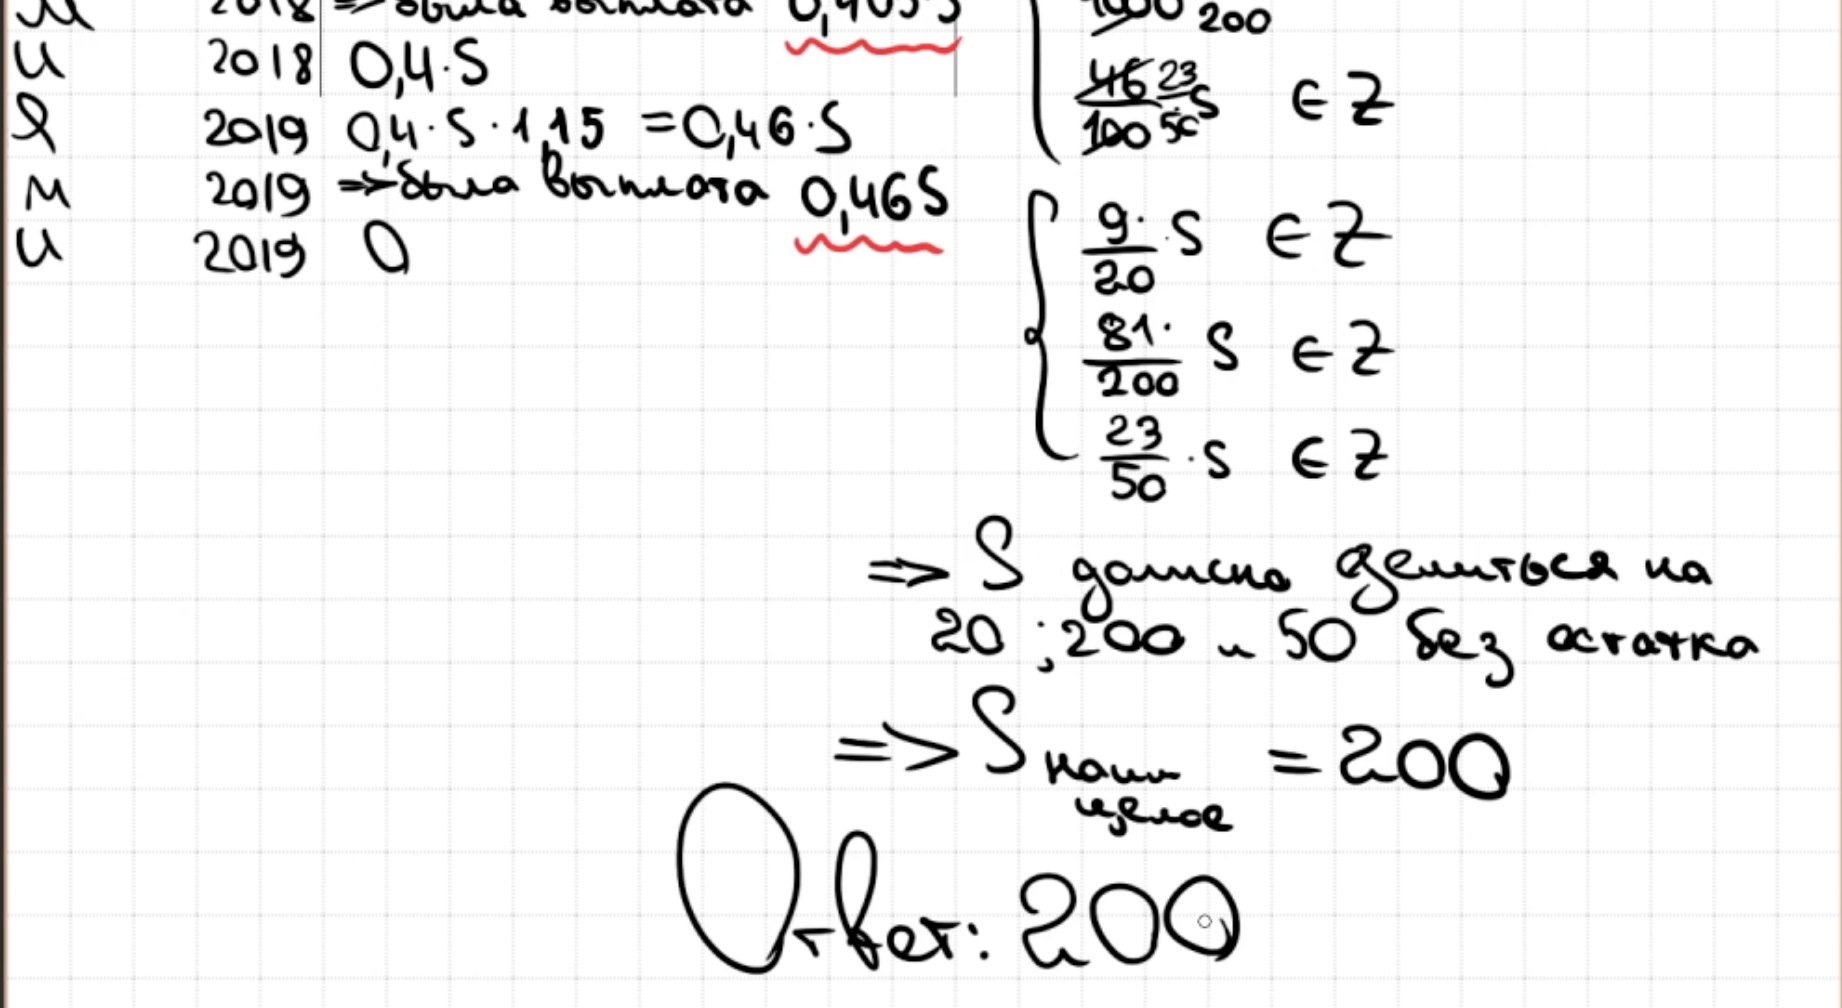 М 2018 => была выплата 0,405·S
И 2018 0,4·S
Я 2019 0,4·S·1,15 = 0,46·S
М 2019 => была выплата 0,46S
И 2019 0
1000 200
46 23
100 50 S ∈ Z
9·
20 ·S ∈ Z
81·
200 S ∈ Z
23
50 ·S ∈ Z
=> S должно делиться на
20 ; 200 и 50 без остатка
=> S наим = 200
целое
Ответ: 200